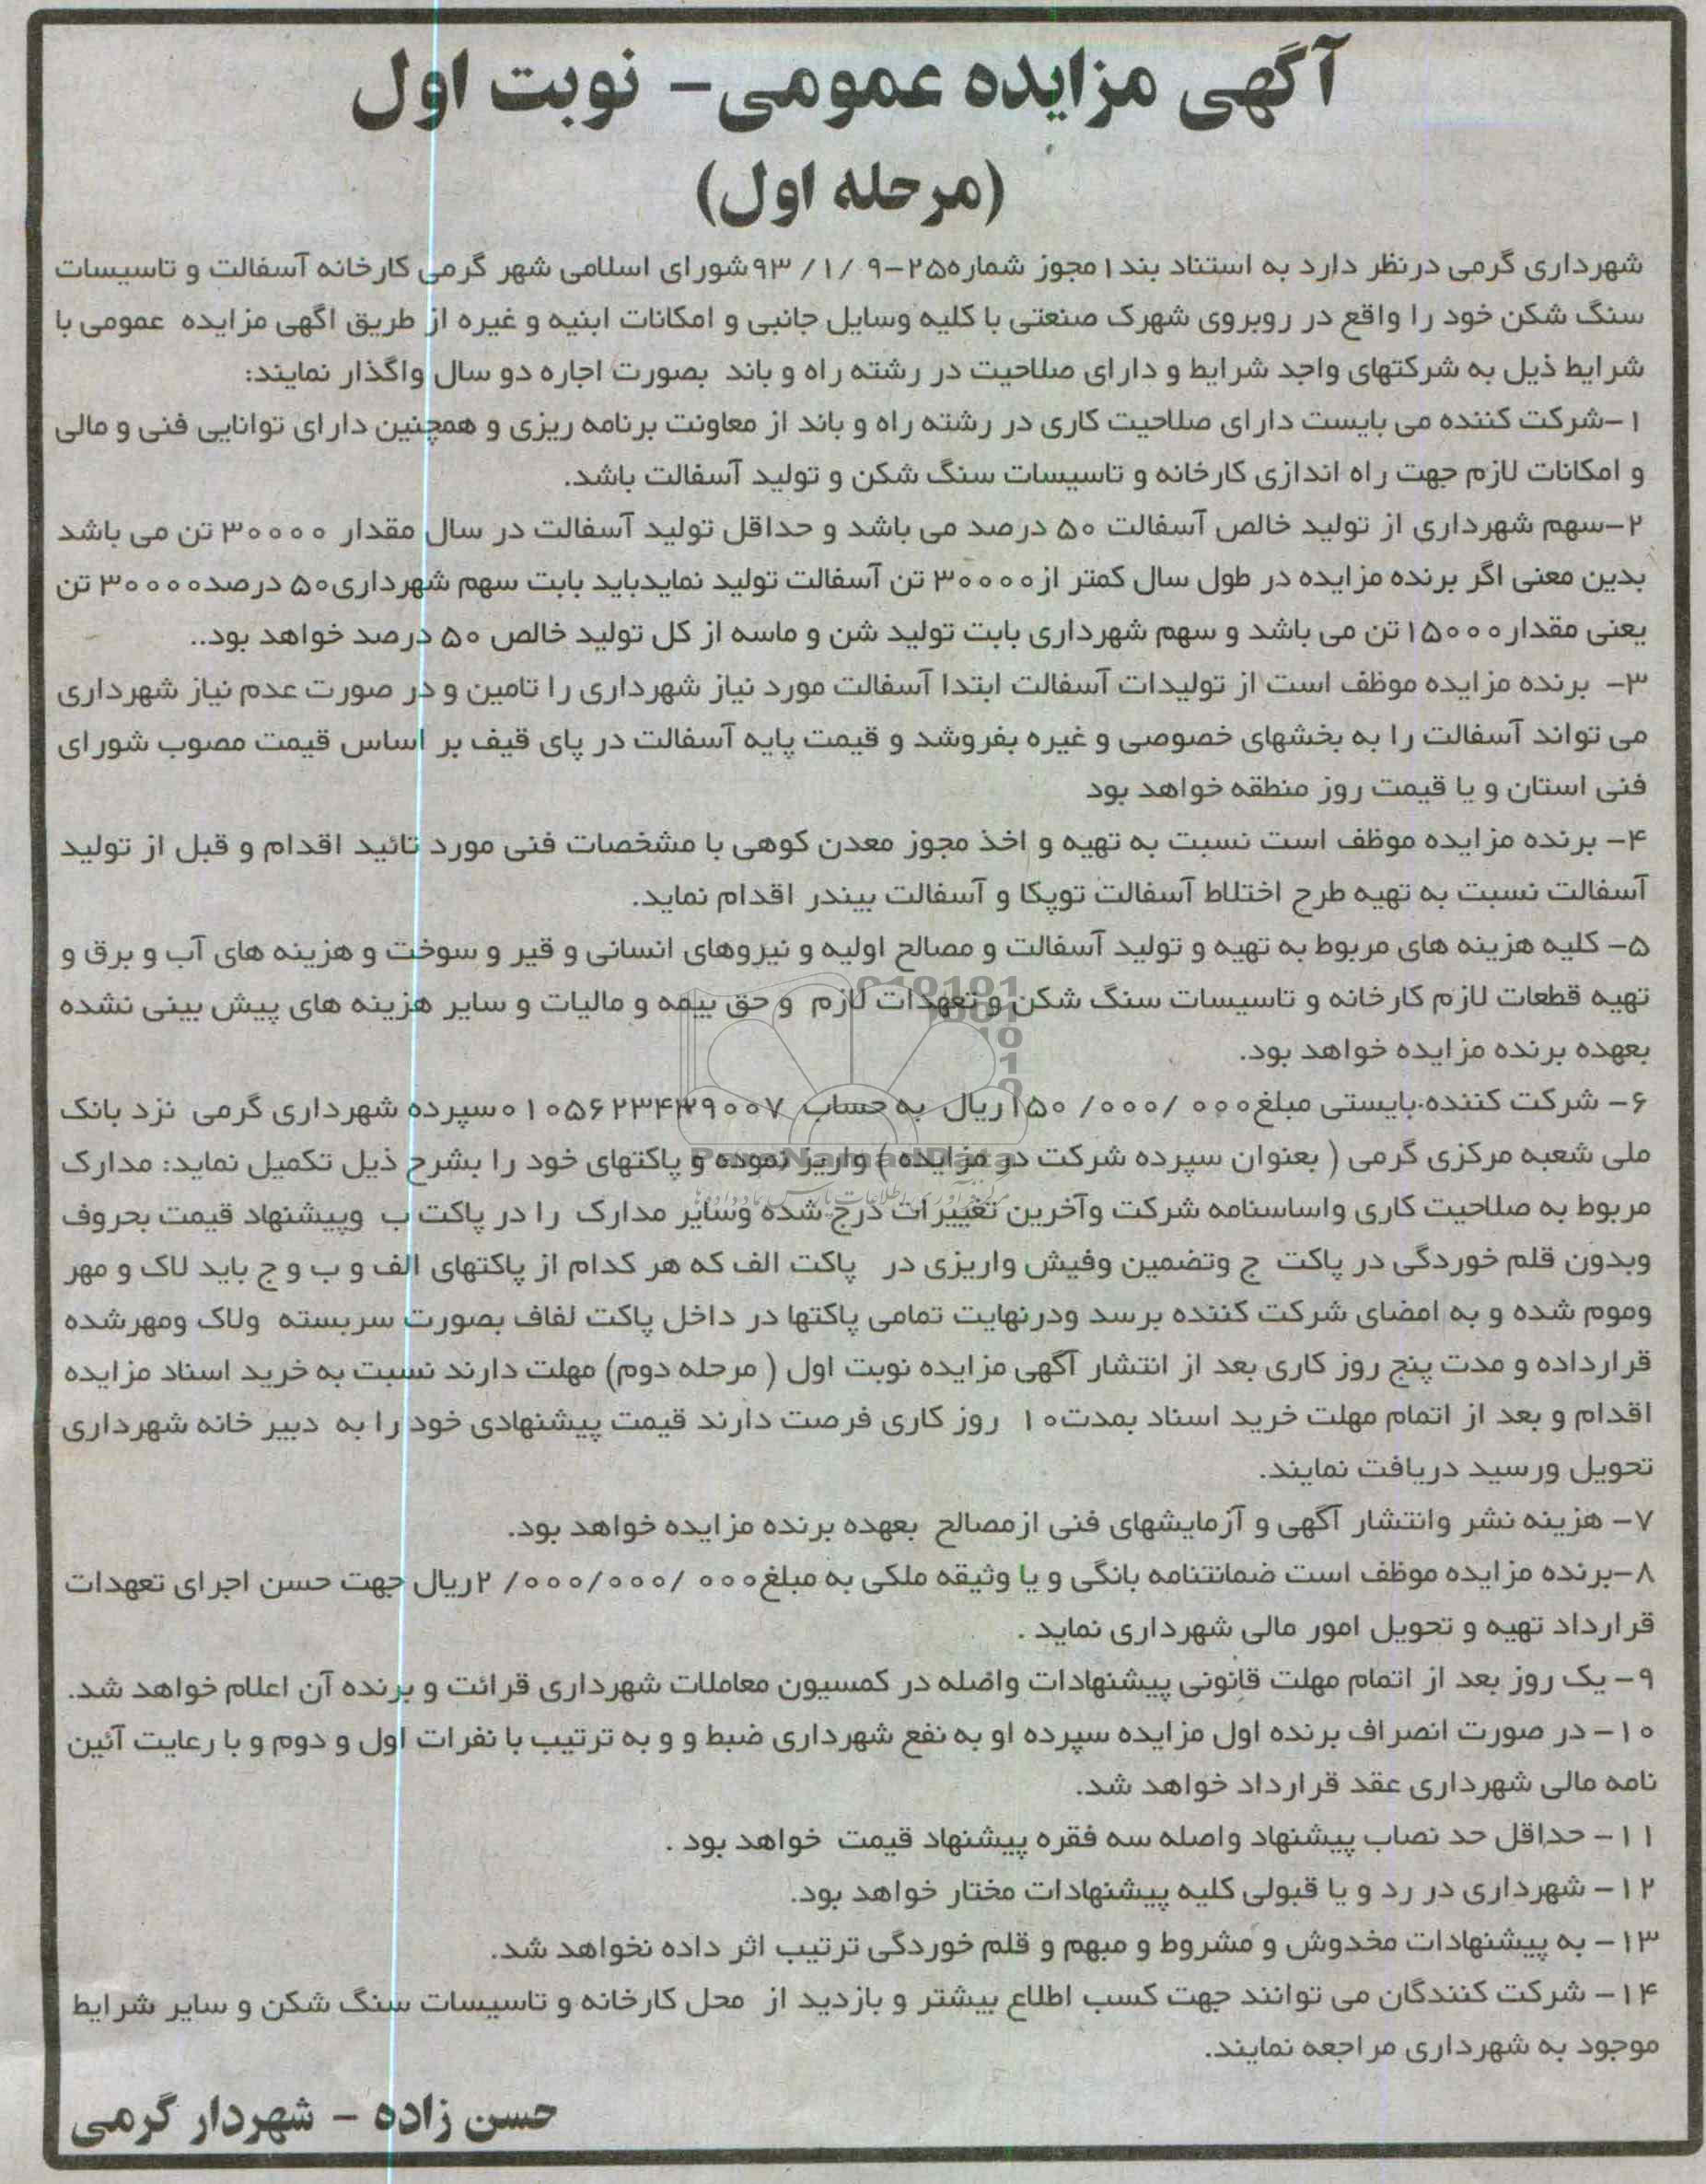 آگهی مزایده عمومی- نوبت اول
(مرحله اول)
شهرداری گرمی درنظر دارد به استناد بند۱مجوز شماره۲۵-۹ /۱/ ۹۳شورای اسلامی شهر گرمی کارخانه آسفالت و تاسیسات
سنگ شکن خود را واقع در روبروی شهرک صنعتی با کلیه وسایل جانبی و امکانات ابنیه و غیره از طریق اگهی مزایده عمومی با
شرایط ذیل به شرکتهای واجد شرایط و دارای صلاحیت در رشته راه و باند بصورت اجاره دو سال واگذار نمایند:
۱-شرکت کننده می بایست دارای صلاحیت کاری در رشته راه و باند از معاونت برنامه ریزی و همچنین دارای توانایی فنی و مالی
و امکانات لازم جهت راه اندازی کارخانه و تاسیسات سنگ شکن و تولید آسفالت باشد.
۲-سهم شهرداری از تولید خالص آسفالت ۵۰ درصد می باشد و حداقل تولید آسفالت در سال مقدار ۳۰۰۰۰ تن می باشد
بدین معنی اگر برنده مزایده در طول سال کمتر از۳۰۰۰۰ تن آسفالت تولید نمایدباید بابت سهم شهرداری۵۰ درصد۳۰۰۰۰ تن
یعنی مقدار۱۵۰۰۰تن می باشد و سهم شهرداری بابت تولید شن و ماسه از کل تولید خالص ۵۰ درصد خواهد بود..
۳- برنده مزایده موظف است از تولیدات آسفالت ابتدا آسفالت مورد نیاز شهرداری را تامین و در صورت عدم نیاز شهرداری
می تواند آسفالت را به بخشهای خصوصی و غیره بفروشد و قیمت پایه آسفالت در پای قیف بر اساس قیمت مصوب شورای
فنی استان و یا قیمت روز منطقه خواهد بود
۴- برنده مزایده موظف است نسبت به تهیه و اخذ مجوز معدن کوهی با مشخصات فنی مورد تائید اقدام و قبل از تولید
آسفالت نسبت به تهیه طرح اختلاط آسفالت توپکا و آسفالت بیندر اقدام نماید.
۵- کلیه هزینه های مربوط به تهیه و تولید آسفالت و مصالح اولیه و نیروهای انسانی و قیر و سوخت و هزینه های آب و برق و
تهیه قطعات لازم کارخانه و تاسیسات سنگ شکن و تعهدات لازم و حق بیمه و مالیات و سایر هزینه های پیش بینی نشده
بعهده برنده مزایده خواهد بود.
۶- شرکت کننده بایستی مبلغ۰۰۰ /۰۰۰/ ۱۵۰ریال به حساب ۰۱۰۵۶۲۳۴۳۹۰۰۷سپرده شهرداری گرمی نزد بانک
ملی شعبه مرکزی گرمی ( بعنوان سپرده شرکت در مزایده ) واریز نموده و پاکتهای خود را بشرح ذیل تکمیل نماید: مدارک
مربوط به صلاحیت کاری واساسنامه شرکت وآخرین تغییرات درج شده وسایر مدارک را در پاکت ب وپیشنهاد قیمت بحروف
وبدون قلم خوردگی در پاکت ج وتضمین وفیش واریزی در پاکت الف که هر کدام از پاکتهای الف و ب و ج باید لاک و مهر
وموم شده و به امضای شرکت کننده برسد ودرنهایت تمامی پاکتها در داخل پاکت لفاف بصورت سربسته ولاک ومهرشده
قرارداده و مدت پنج روز کاری بعد از انتشار آگهی مزایده نوبت اول ( مرحله دوم) مهلت دارند نسبت به خرید اسناد مزایده
اقدام و بعد از اتمام مهلت خرید اسناد بمدت۱۰ روز کاری فرصت دارند قیمت پیشنهادی خود را به دبیر خانه شهرداری
تحویل ورسید دریافت نمایند.
۷- هزینه نشر وانتشار آگهی و آزمایشهای فنی ازمصالح بعهده برنده مزایده خواهد بود.
۸-برنده مزایده موظف است ضمانتنامه بانگی و یا وثیقه ملکی به مبلغ۰۰۰ /۰۰۰/۰۰۰/ ۲ریال جهت حسن اجرای تعهدات
قرارداد تهیه و تحویل امور مالی شهرداری نماید .
۹- یک روز بعد از اتمام مهلت قانونی پیشنهادات واضله در کمسیون معاملات شهرداری قرائت و برنده آن اعلام خواهد شد.
۱۰- در صورت انصراف برنده اول مزایده سپرده او به نفع شهرداری ضبط و و به ترتیب با نفرات اول و دوم و با رعایت آئین
نامه مالی شهرداری عقد قرارداد خواهد شد.
۱۱- حداقل حد نصاب پیشنهاد واصله سه فقره پیشنهاد قیمت خواهد بود .
۱۲- شهرداری در رد و یا قبولی کلیه پیشنهادات مختار خواهد بود.
۱۳- به پیشنهادات مخدوش و مشروط و مبهم و قلم خوردگی ترتیب اثر داده نخواهد شد.
۱۴- شرکت کنندگان می توانند جهت کسب اطلاع بیشتر و بازدید از محل کارخانه و تاسیسات سنگ شکن و سایر شرایط
موجود به شهرداری مراجعه نمایند.
حسن زاده - شهردار گرمی